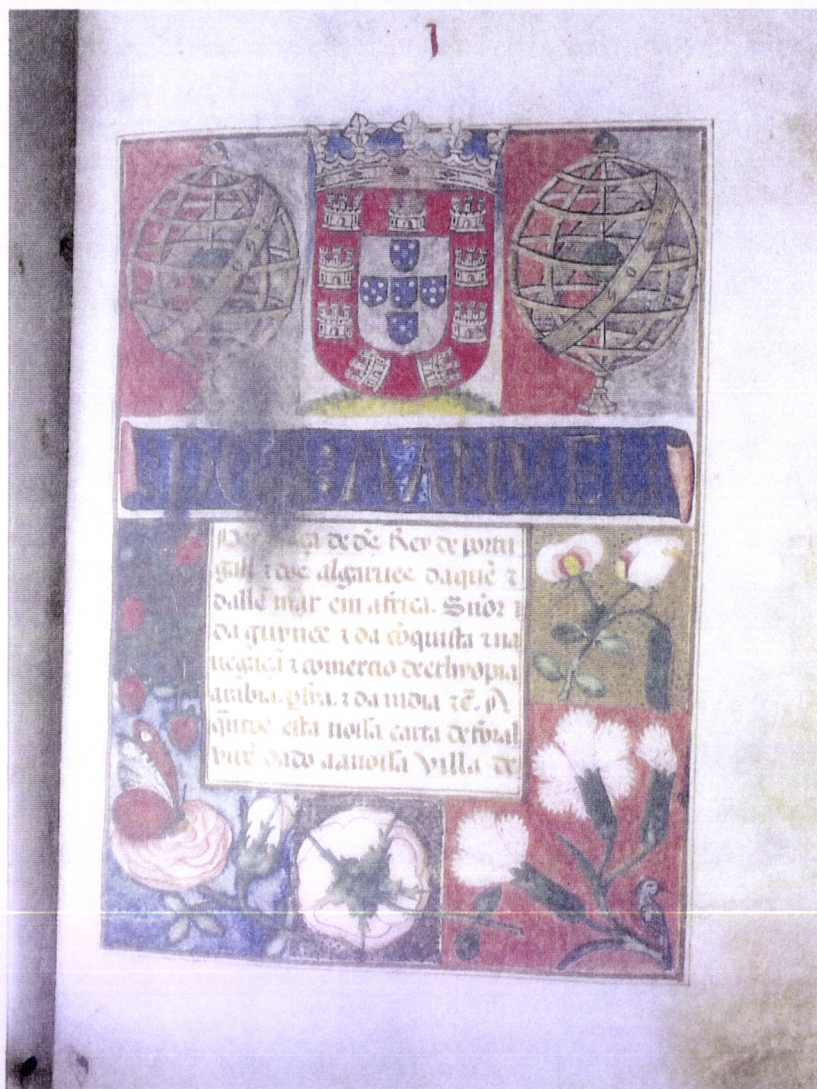 1
DOM MANVEL
Per graça de dẽ. Rey de portu
gall ⁊ dos algarues daquẽ ⁊
dallẽ mar em africa. Snõr ⁊
da guynee ⁊ da cõquista ⁊ na
uegaçã ⁊ comercio de ethiopia
arabia. psia. ⁊ da india ⁊č. A
q̃ntos esta nossa carta de foral
virẽ dado aa nossa Villa de